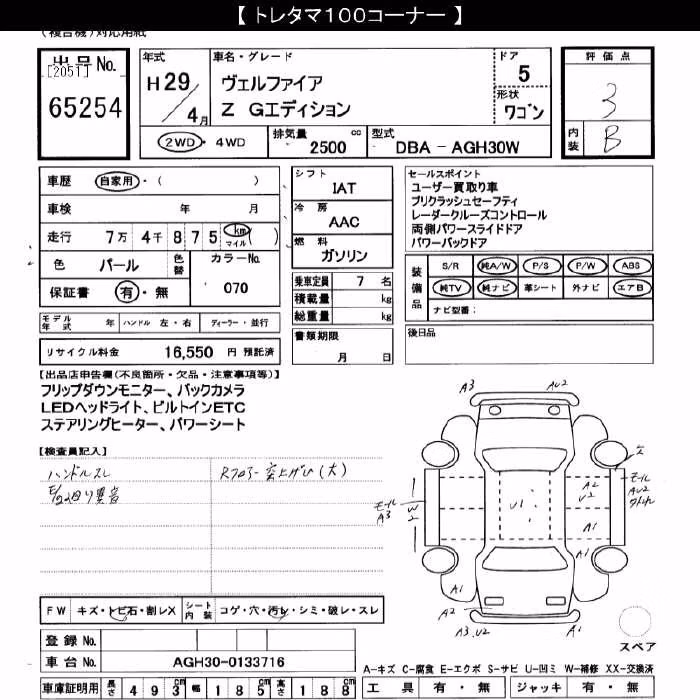 【 トレタマ100コーナー 】
(複合機)対応用紙
出品No.
[2051]
65254
年式
H29/4月
車名・グレード
ヴェルファイア
Z Gエディション
ドア
5
形状
ワゴン
評価点
3
内装
B
2WD・4WD
排気量
2500 cc
型式
DBA - AGH30W
車歴
自家用・( )
車検
年 月
走行
7万 4千 8 7 5 km マイル ( )
色
パール
色替
カラーNo.
070
保証書
有・無
シフト
IAT
冷房
AAC
燃料
ガソリン
乗車定員 7 名
積載量 kg
総重量 kg
書類期限
月 日
セールスポイント
ユーザー買取り車
プリクラッシュセーフティ
レーダークルーズコントロール
両側パワースライドドア
パワーバックドア
装備品
S/R 純A/W P/S P/W ABS
純TV 純ナビ 革シート 外ナビ エアB
ナビ型番:
後日品
モデル年式 年 ハンドル 左・右 ディーラー・並行
リサイクル料金 16,550 円 預託済
【出品店申告欄(不良箇所・欠品・注意事項等)】
フリップダウンモニター、バックカメラ
LEDヘッドライト、ビルトインETC
ステアリングヒーター、パワーシート
【検査員記入】
ハンドルスレ
R703-突上げひ(大)
回り異音
A3
AU2
モール
A3
W2
U1
A2
U2
A1
モール
AU2
A1
A1
A2
A3.U2
A1
スペア
FW キズ・トビ石・割レX
シート内装 コゲ・穴・汚レ・シミ・破レ・スレ
登録No.
車台No. AGH30-0133716
車庫証明用 長さ 493cm 幅 185cm 高さ 188cm
A-キズ C-腐食 E-エクボ S-サビ U-凹ミ W-補修 XX-交換済
工具 有・無 ジャッキ 有・無